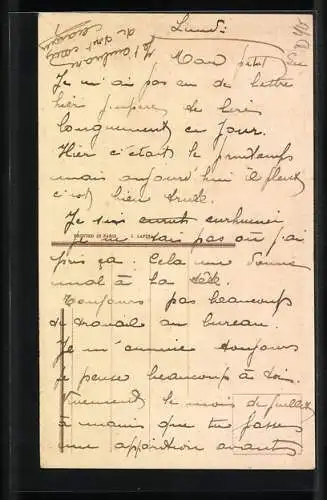 Lundi
Mon petit
Je n'ai pas eu de lettre
hier j'espère de lire
longuement ce jour.
Hier c'était le printemps
mais aujourd'hui il pleut
c'est bien triste.
Je suis enrhumée
je ne sais pas où j'ai
pris ça. Cela me donne
mal à la tête.
Toujours pas beaucoup
de travail au bureau.
Je m'ennuie toujours
je pense beaucoup à toi.
Vivement le mois de juillet
à moins que tu fasses
une apparition avant